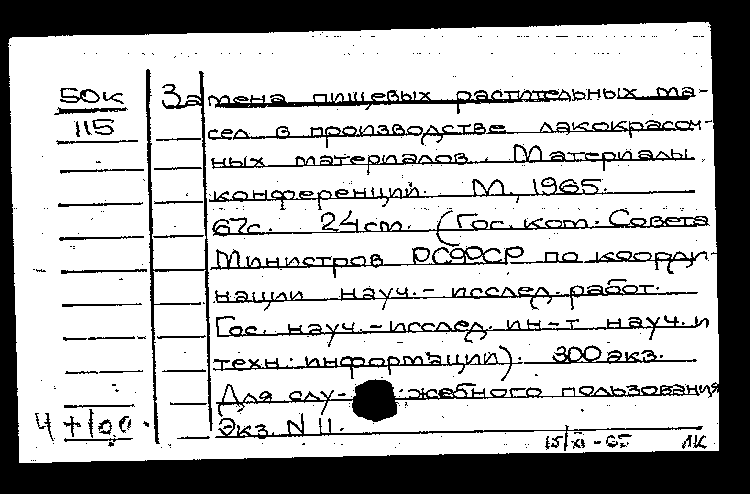 50к
115
Замена пищевых растительных ма-
сел в производстве лакокрасоч-
ных материалов. Материалы
конференции. М., 1965.
67с. 24 см. (Гос. ком. Совета
Министров РСФСР по коорди-
нации науч.-исслед. работ.
Гос. науч.-исслед. ин-т науч. и
техн. информации). 300 экз.
Для слу- жебного пользования
Экз. N 11.
15/XI-65 ЛК